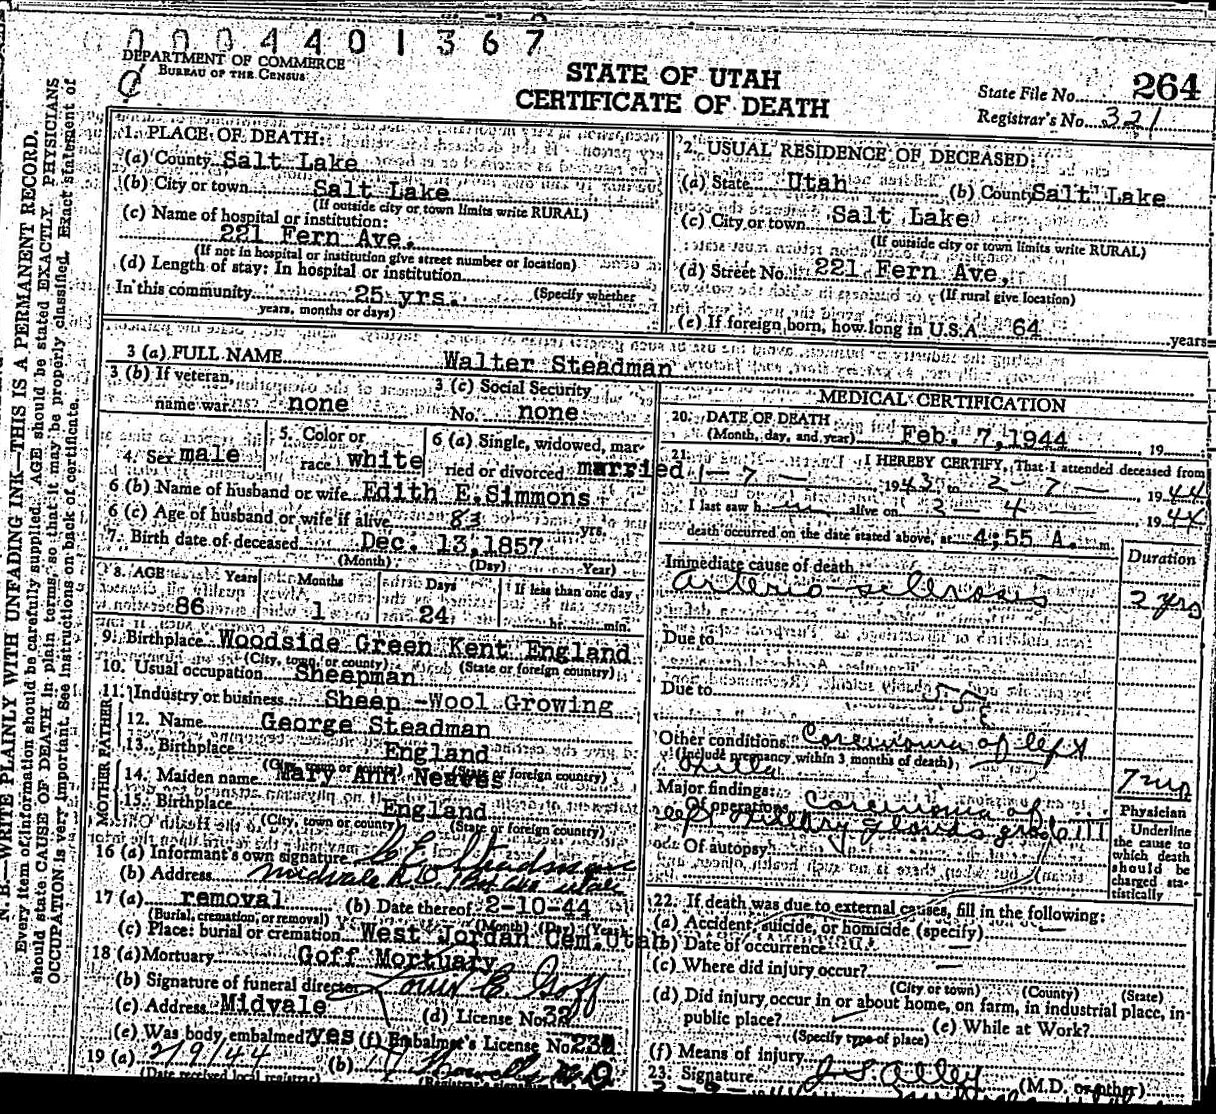 0004401367
DEPARTMENT OF COMMERCE
BUREAU OF THE CENSUS
STATE OF UTAH
CERTIFICATE OF DEATH
State File No. 264
Registrar's No. 321
N. B.—WRITE PLAINLY WITH UNFADING INK—THIS IS A PERMANENT RECORD.
Every item of information should be carefully supplied. AGE should be stated EXACTLY. PHYSICIANS
should state CAUSE OF DEATH in plain terms, so that it may be properly classified. Exact statement of
OCCUPATION is very important. See instructions on back of certificate.
1. PLACE OF DEATH:
(a) County Salt Lake
(b) City or town Salt Lake
(If outside city or town limits write RURAL)
(c) Name of hospital or institution:
221 Fern Ave.
(If not in hospital or institution give street number or location)
(d) Length of stay: In hospital or institution
In this community 25 yrs. (Specify whether
years, months or days)
2. USUAL RESIDENCE OF DECEASED:
(a) State Utah (b) County Salt Lake
(c) City or town Salt Lake
(If outside city or town limits write RURAL)
(d) Street No. 221 Fern Ave,
(If rural give location)
(e) If foreign born, how long in U.S.A. 64 years
3 (a) FULL NAME Walter Steadman
3 (b) If veteran,
name war none
3 (c) Social Security
No. none
4. Sex male
5. Color or
race white
6 (a) Single, widowed, mar-
ried or divorced married
6 (b) Name of husband or wife Edith E.Simmons
6 (c) Age of husband or wife if alive 83 yrs.
7. Birth date of deceased Dec. 13,1857
(Month) (Day) (Year)
8. AGE Years Months Days If less than one day
86 1 24 hr. min.
9. Birthplace Woodside Green Kent England
(City, town, or county) (State or foreign country)
10. Usual occupation Sheepman
11. Industry or business Sheep -Wool Growing
FATHER
12. Name George Steadman
13. Birthplace England
(City, town or county) (State or foreign country)
MOTHER
14. Maiden name Mary Ann Neaves
15. Birthplace England
(City, town or county) (State or foreign country)
16 (a) Informant's own signature Steadman
(b) Address Midvale
17 (a) removal (b) Date thereof 2-10-44
(Burial, cremation, or removal) (Month) (Day) (Year)
(c) Place: burial or cremation West Jordan Cem.Utah
18 (a) Mortuary Goff Mortuary
(b) Signature of funeral director Louis E. Goff
(c) Address Midvale (d) License No. 32
(e) Was body embalmed? yes (f) Embalmer's License No. 232
19 (a) 2/9/44 (b)
(Date received local registrar)
MEDICAL CERTIFICATION
20. DATE OF DEATH
(Month, day, and year) Feb. 7,1944, 19
21. I HEREBY CERTIFY, That I attended deceased from
1-7- 1943 to 2-7-, 1944
I last saw h im alive on 2-4-, 1944
death occurred on the date stated above, at 4:55 A. m.
Duration
Immediate cause of death
arterio-sclerosis 2 yrs
Due to
Due to
Other conditions Carcinoma of left
(Include pregnancy within 3 months of death)
axilla
Major findings:
Of operations Carcinoma of
left axillary glands grade III
Of autopsy
Physician
Underline
the cause to
which death
should be
charged sta-
tistically
22. If death was due to external causes, fill in the following:
(a) Accident, suicide, or homicide (specify) —
(b) Date of occurrence —
(c) Where did injury occur? —
(City or town) (County) (State)
(d) Did injury occur in or about home, on farm, in industrial place, in
public place? (e) While at Work?
(Specify type of place)
(f) Means of injury
23. Signature (M.D. or other)